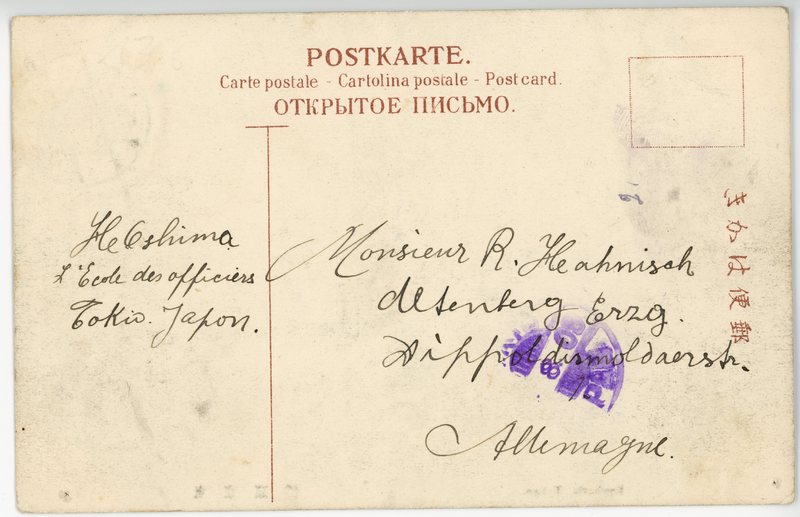 POSTKARTE.
Carte postale - Cartolina postale - Post card.
ОТКРЫТОЕ ПИСЬМО.
きかは便郵
He Oshima
L'École des officiers
Tokio. Japon.
Monsieur R. Hahnisch
Altenberg Erzg.
Allemagne.